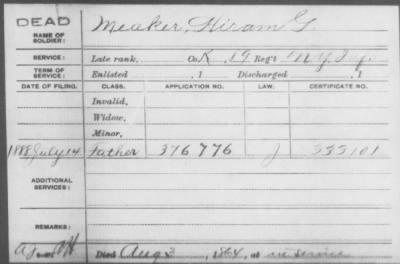 DEAD
NAME OF SOLDIER: Meaker, Hiram G.
SERVICE: Late rank, Co. K, 19 Reg't N.Y. Inf.
TERM OF SERVICE: Enlisted , 1 Discharged , 1
DATE OF FILING. CLASS. APPLICATION NO. LAW. CERTIFICATE NO.
Invalid,
Widow,
Minor,
1888 July 14 Father 376776 J 333101
ADDITIONAL SERVICES:
REMARKS:
Died Aug 3, 1864, at in service